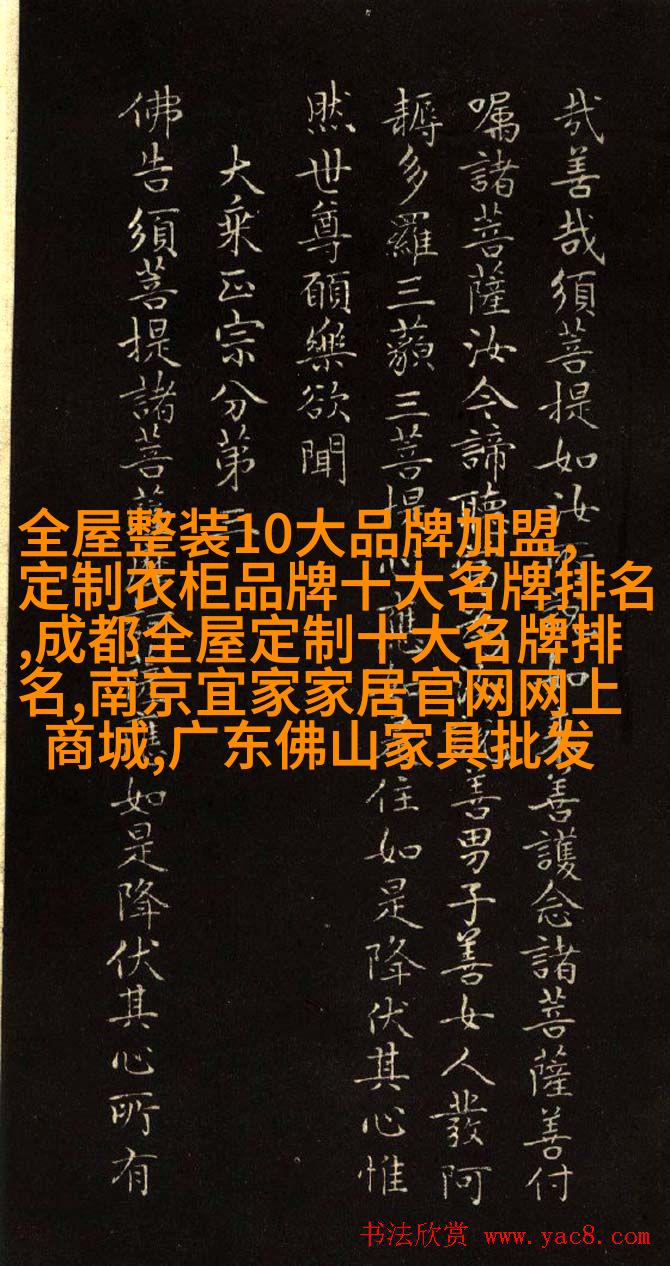 哉善哉須菩提如汝善護念諸菩薩善付
囑諸菩薩汝今諦聽善男子善女人發阿
耨多羅三藐三菩提應住如是降伏其心惟
然世尊願樂欲聞
大乘正宗分第
佛告須菩提諸菩如是降伏其心所有
全屋整装10大品牌加盟,
定制衣柜品牌十大名牌排名
,成都全屋定制十大名牌排
名,南京宜家家居官网网上
商城,广东佛山家具批发
书法欣赏 www.yac8.com